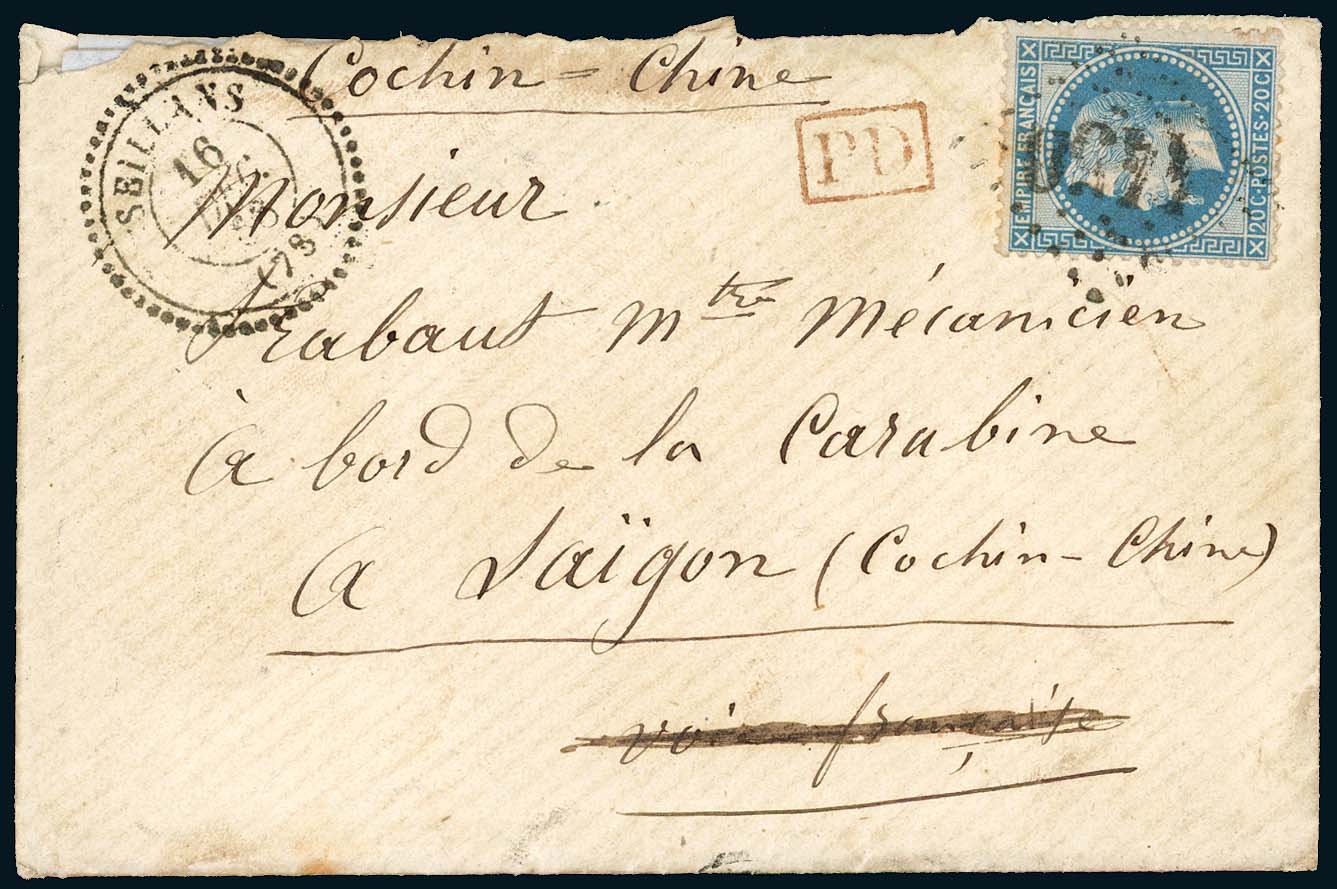 Cochin = Chine
SEILLANS
16
DEC.
68
(78)
PD
EMPIRE FRANÇAIS
20C·POSTES·20C
Monsieur
Rabaut mtre Mécanicien
à bord de la Carabine
a Saïgon (Cochin-Chine)
voie française